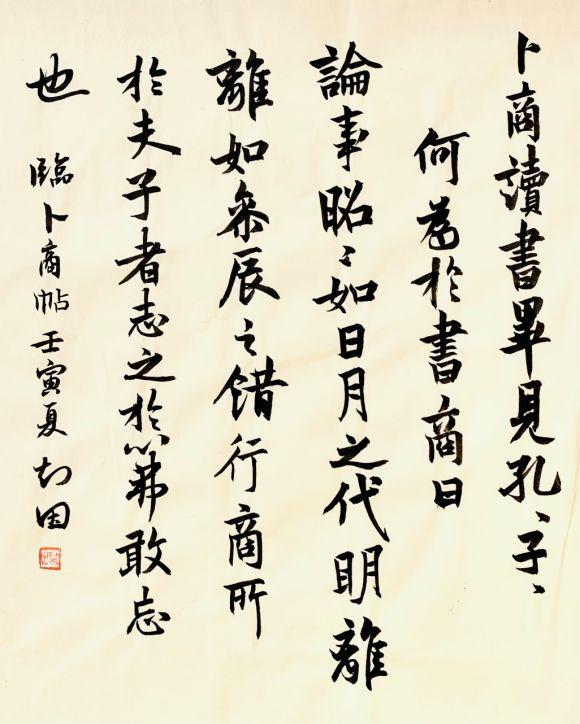 卜商讀書畢見孔〻子〻
何為於書商曰
論事昭〻如日月之代明離
離如參辰之錯行商所
於夫子者志之於心弗敢忘
也 臨卜商帖壬寅夏 田